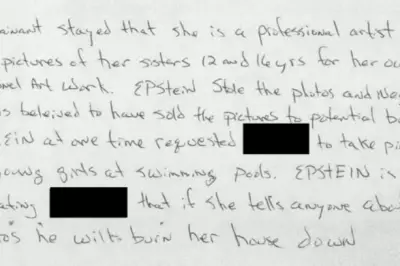 ainant stayed that she is a professional artist
pictures of her sisters 12 and 16 yrs for her ow
nal Art work. EPStein Stole the photos and Ne
is beleived to have sold the pictures to potential b
EIN at one time requested to take pi
young girls at swimming pools. EPSTEIN is
ating that if she tells anyone abo
tos he wills burn her house down